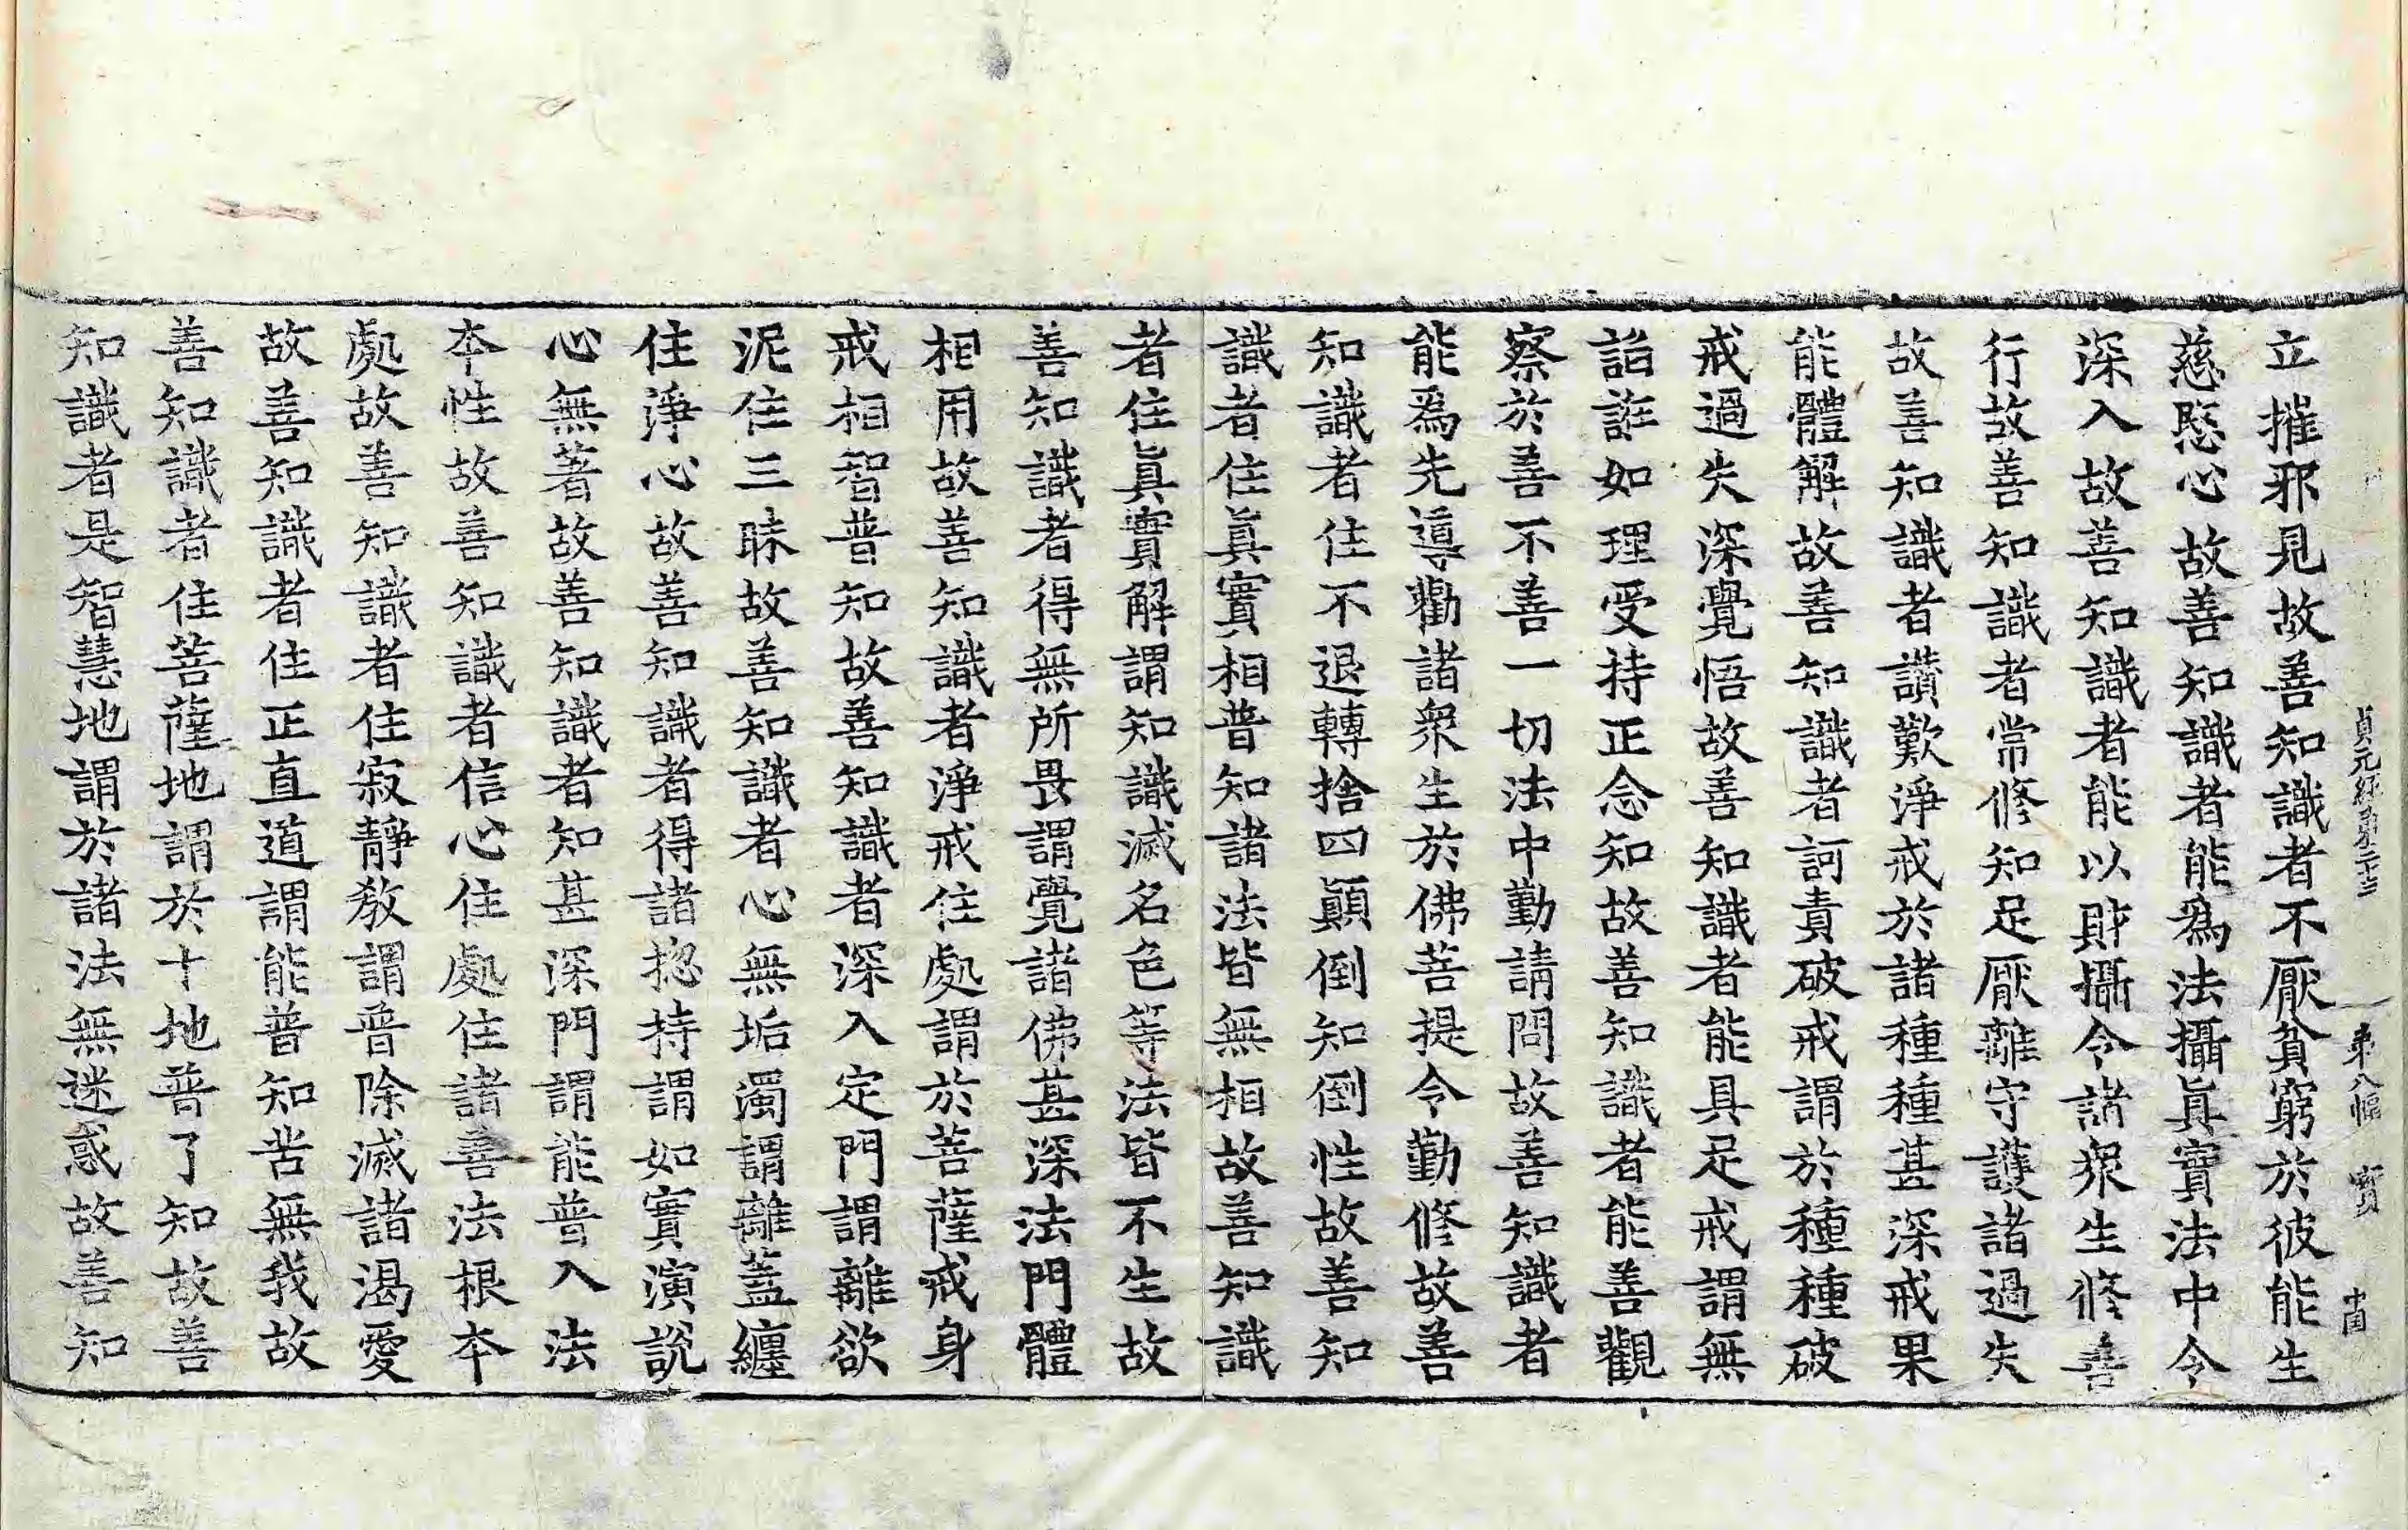 貞元經第二十三 第八幅 實
立摧邪見故善知識者不厭貧窮於彼能生
慈愍心故善知識者能爲法攝眞實法中令
深入故善知識者能以財攝令諸衆生修善
行故善知識者常修知足厭離守護諸過失
故善知識者讃歎淨戒於諸種種甚深戒果
能體解故善知識者訶責破戒謂於種種破
戒過失深覺悟故善知識者能具足戒謂無
諂誑如理受持正念知故善知識者能善觀
察於善不善一切法中勤請問故善知識者
能爲先導勸諸衆生於佛菩提令勤修故善
知識者住不退轉捨四顚倒知倒性故善知
識者住眞實相普知諸法皆無相故善知識
者住眞實解謂知識滅名色等法皆不生故
善知識者得無所畏謂覺諸佛甚深法門體
相用故善知識者淨戒住處謂於菩薩戒身
戒相智普知故善知識者深入定門謂離欲
泥住三昧故善知識者心無垢濁謂離蓋纏
住淨心故善知識者得諸揔持謂如實演說
心無著故善知識者知甚深門謂能普入法
本性故善知識者信心住處住諸善法根本
處故善知識者住寂靜教謂普除滅諸渴愛
故善知識者住正直道謂能普知苦無我故
善知識者住菩薩地謂於十地普了知故善
知識者是智慧地謂於諸法無迷惑故善知